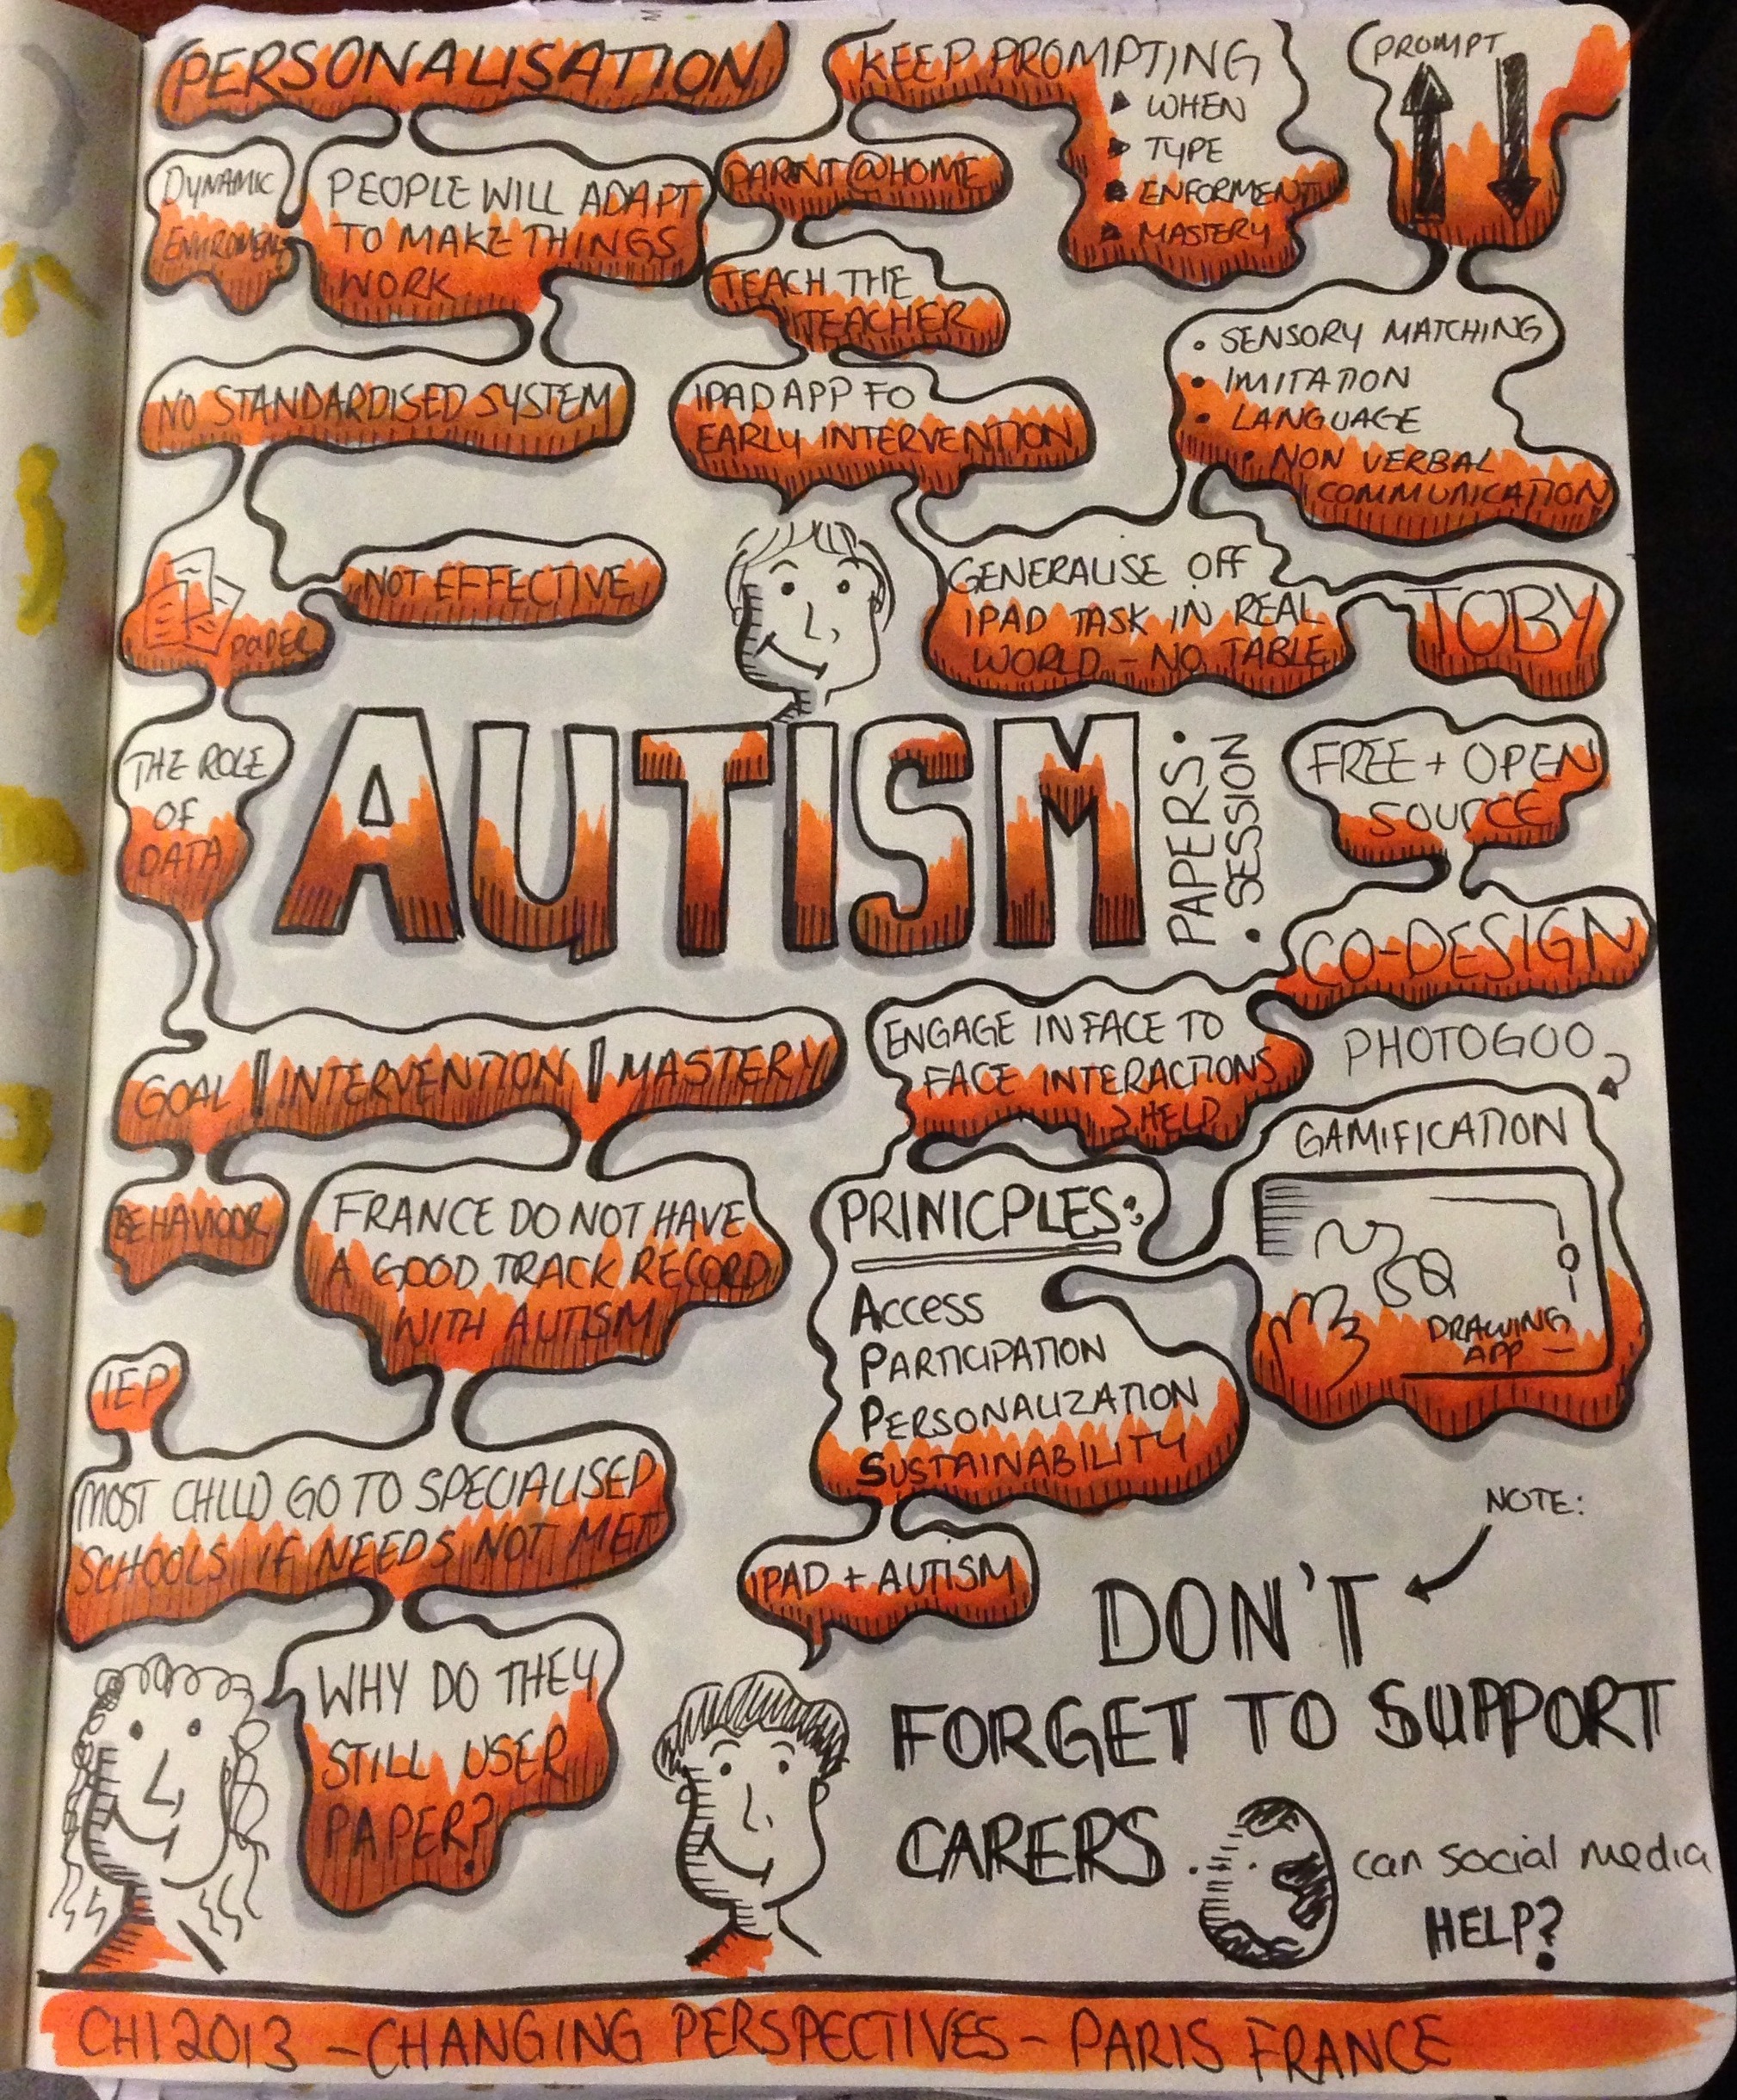 PERSONALISATION
DYNAMIC
PEOPLE WILL ADAPT
TO MAKE THINGS
WORK
NO STANDARDISED SYSTEM
NOT EFFECTIVE
PAPER
THE ROLE
OF
DATA
GOAL || INTERVENTION || MASTERY
BEHAVIOUR
FRANCE DO NOT HAVE
A GOOD TRACK RECORD
WITH AUTISM
IEP
MOST CHILD GO TO SPECIALISED
SCHOOLS IF NEEDS NOT MET
WHY DO THEY
STILL USER
PAPER?
KEEP PROMPTING
WHEN
TYPE
ENFORMENT
MASTERY
PARNT@HOME
TEACH THE
TEACHER
IPAD APP FO
EARLY INTERVENTION
PROMPT
• SENSORY MATCHING
• IMITATION
• LANGUAGE
• NON VERBAL
COMMUNICATION
GENERALISE OFF
IPAD TASK IN REAL
WORLD - NO TABLE
TOBY
AUTISM
PAPERS:
SESSION
FREE + OPEN
SOURCE
CO-DESIGN
ENGAGE IN FACE TO
FACE INTERACTIONS
> HELP
PHOTOGOO
GAMIFICATION
DRAWING
APP
PRINICPLES:
ACCESS
PARTICIPATION
PERSONALIZATION
SUSTAINABILITY
IPAD + AUTISM
NOTE:
DON'T
FORGET TO SUPPORT
CARERS.
can social media
HELP?
CHI 2013 - CHANGING PERSPECTIVES - PARIS FRANCE